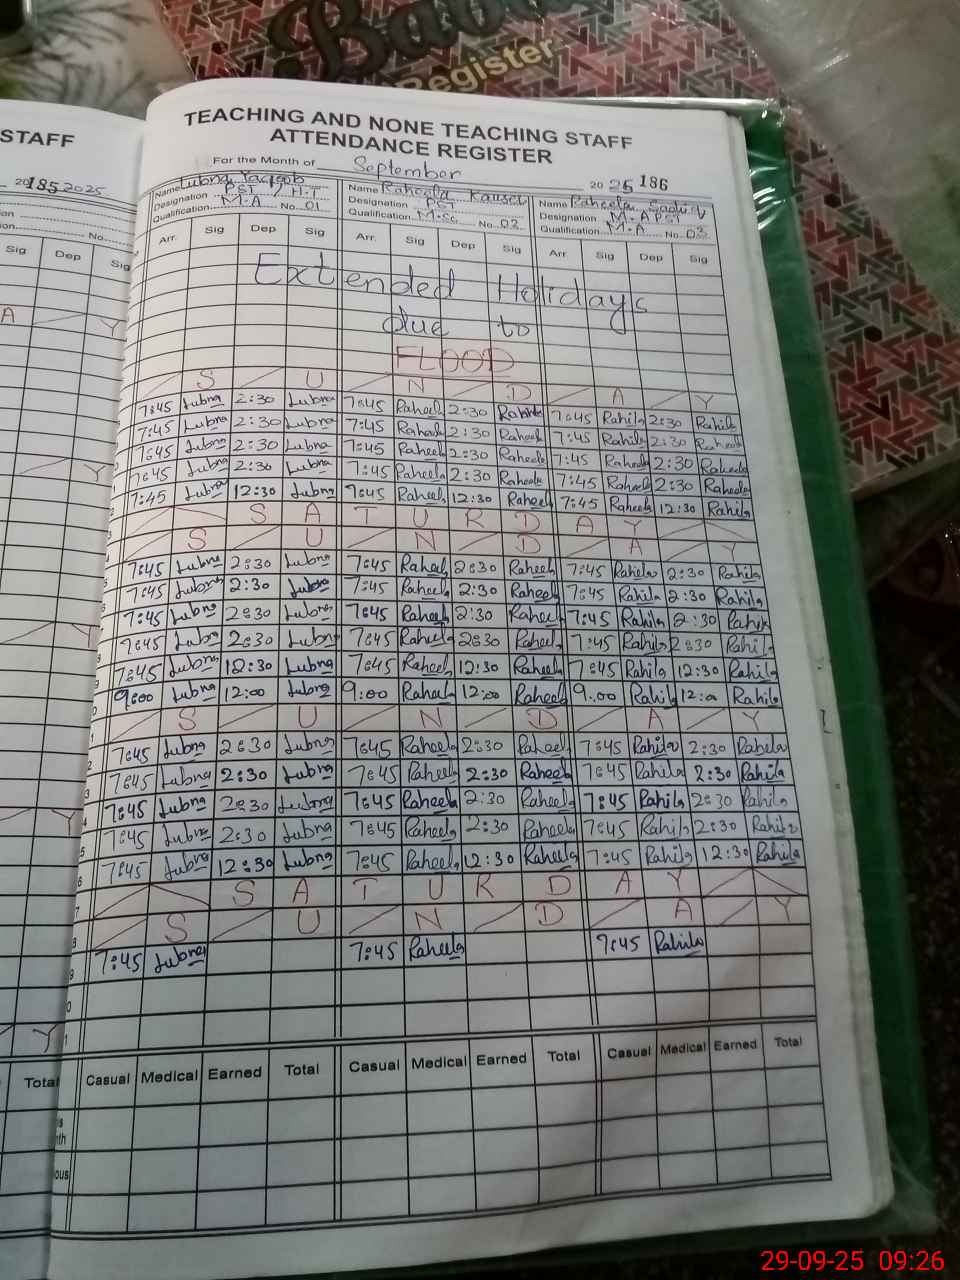 Register
STAFF
2025
185
TEACHING AND NONE TEACHING STAFF
ATTENDANCE REGISTER
For the Month of September 2025 186
Name Lubna Yaqoob Name Raheela Kausar Name Raheela
Designation PST / H.T Designation PST Designation M.A PST
Qualification M.A No. 01 Qualification M.Sc No. 02 Qualification M.A No. 03
Sig Dep Sig Arr. Sig Dep Sig Arr. Sig Dep Sig Arr Sig Dep Sig
Extended Holidays
due to
FLOOD
S U N D A Y
7:45 Lubna 2:30 Lubna 7:45 Raheela 2:30 Raheela 7:45 Rahila 2:30 Rahila
7:45 Lubna 2:30 Lubna 7:45 Raheela 2:30 Raheela 7:45 Rahila 2:30 Raheela
7:45 Lubna 2:30 Lubna 7:45 Raheela 2:30 Raheela 7:45 Raheela 2:30 Raheela
7:45 Lubna 2:30 Lubna 7:45 Raheela 2:30 Raheela 7:45 Raheela 2:30 Raheela
7:45 Lubna 12:30 Lubna 7:45 Raheela 12:30 Raheela 7:45 Raheela 12:30 Rahila
S A T U R D A Y
S U N D A Y
7:45 Lubna 2:30 Lubna 7:45 Raheela 2:30 Raheela 7:45 Rahila 2:30 Rahila
7:45 Lubna 2:30 Lubna 7:45 Raheela 2:30 Raheela 7:45 Rahila 2:30 Rahila
7:45 Lubna 2:30 Lubna 7:45 Raheela 2:30 Raheela 7:45 Rahila 2:30 Rahila
7:45 Lubna 2:30 Lubna 7:45 Raheela 2:30 Raheela 7:45 Rahila 2:30 Rahila
7:45 Lubna 12:30 Lubna 7:45 Raheela 12:30 Raheela 7:45 Rahila 12:30 Rahila
9:00 Lubna 12:00 Lubna 9:00 Raheela 12:00 Raheela 9:00 Rahila 12:00 Rahila
S U N D A Y
7:45 Lubna 2:30 Lubna 7:45 Raheela 2:30 Raheela 7:45 Rahila 2:30 Rahila
7:45 Lubna 2:30 Lubna 7:45 Raheela 2:30 Raheela 7:45 Rahila 2:30 Rahila
7:45 Lubna 2:30 Lubna 7:45 Raheela 2:30 Raheela 7:45 Rahila 2:30 Rahila
7:45 Lubna 2:30 Lubna 7:45 Raheela 2:30 Raheela 7:45 Rahila 2:30 Rahila
7:45 Lubna 12:30 Lubna 7:45 Raheela 12:30 Raheela 7:45 Rahila 12:30 Rahila
S A T U R D A Y
S U N D A Y
7:45 Lubna 7:45 Raheela 7:45 Rahila
Total Casual Medical Earned Total Casual Medical Earned Total Casual Medical Earned Total
29-09-25 09:26